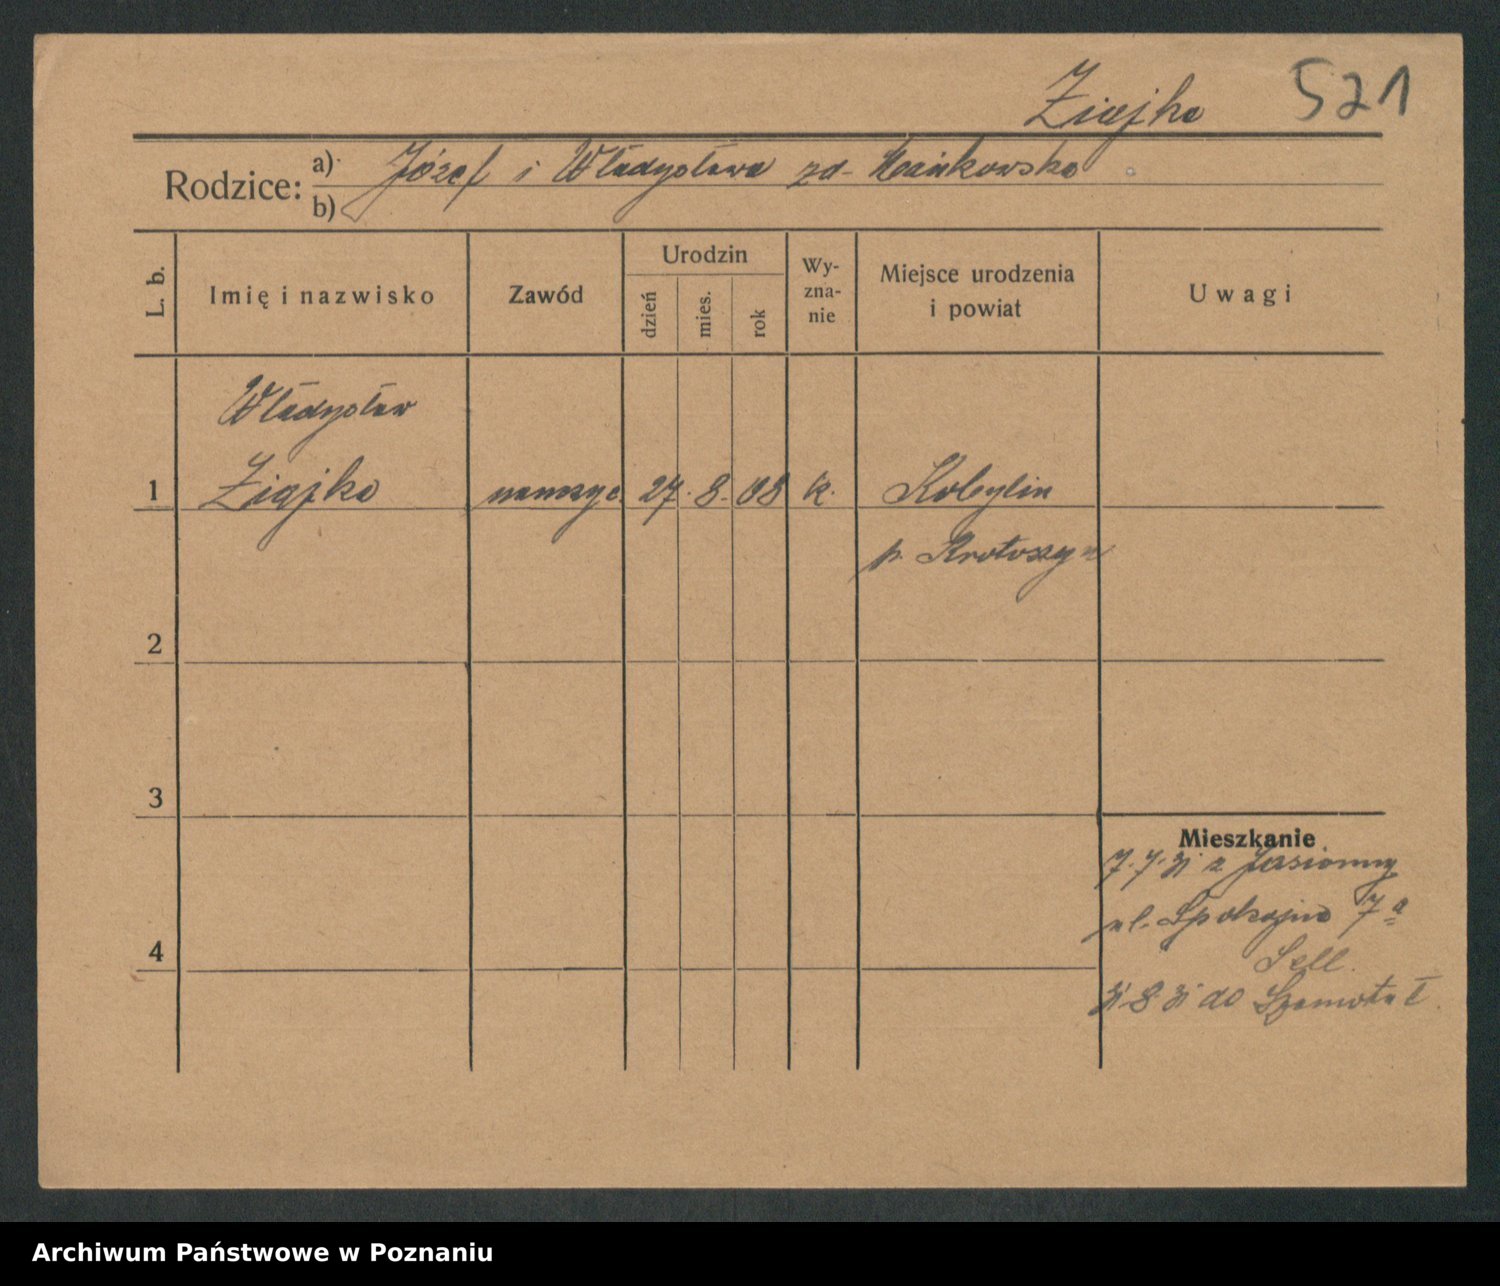 Ziajka 521
Rodzice: a) Józef i Władysława zd. Mańkowska
b)
L. b.
Imię i nazwisko
Zawód
Urodzin
dzień
mies.
rok
Wy-
zna-
nie
Miejsce urodzenia
i powiat
Uwagi
Władysław
1 Ziajka 27. 8. 08 k. Kobylin
p. Krotoszyn
2
3
Mieszkanie
7.7.31 z
ul. Spokojna 7a
4
Sell.
31 8 31 do Szamotuł.
Archiwum Państwowe w Poznaniu